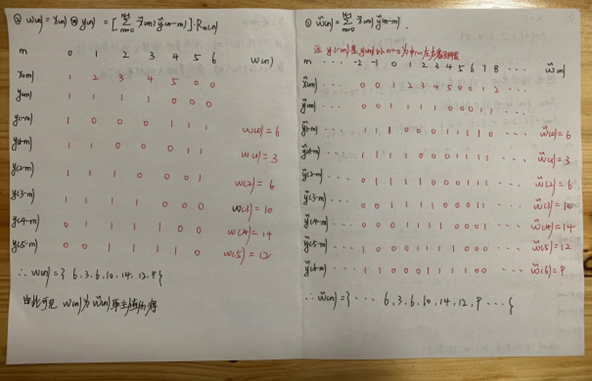 ② w(n) = x(n) ⑦ y(n) = [ Σ x̃(m) ỹ(n-m) ]·R_N(n)
m 0 1 2 3 4 5 6 w(n)
x(m) 1 2 3 4 5 0 0
y(m) 1 1 1 1 0 0 0
y(-m) 1 0 0 0 1 1 1 w(0)=6
y(1-m) 1 1 0 0 0 1 1 w(1)=3
y(2-m) 1 1 1 0 0 0 1 w(2)=6
y(3-m) 1 1 1 1 0 0 0 w(3)=10
y(4-m) 0 1 1 1 1 0 0 w(4)=14
y(5-m) 0 0 1 1 1 1 0 w(5)=12
∴ w(n)={ 6,3,6,10,14,12,9 }
由此可见 w(n)为 w̃(n)
① w̃(n)= Σ x̃(m) ỹ(n-m).
m ... -2 -1 0 1 2 3 4 5 6 7 8 ... w̃(n)
x̃(m) ... 0 0 1 2 3 4 5 0 0 1 2 ...
ỹ(m) ... 0 0 1 1 1 1 0 0 0 1 1 ...
ỹ(-m) ... 1 1 1 0 0 0 1 1 1 1 0 ... w̃(0)=6
ỹ(1-m) ... w̃(1)=3
ỹ(2-m) ... 0 1 1 1 1 0 0 0 1 1 1 ... w̃(2)=6
ỹ(3-m) ... 0 0 1 1 1 1 0 0 0 1 1 ... w̃(3)=10
ỹ(4-m) ... 0 0 0 1 1 1 1 0 0 0 1 ... w̃(4)=14
ỹ(5-m) ... 1 0 0 0 1 1 1 1 0 0 0 ... w̃(5)=12
ỹ(6-m) ... 1 1 0 0 0 1 1 1 1 0 0 ... w̃(6)=9
∴ w̃(n)={ ... 6,3,6,10,14,12,9 ... }